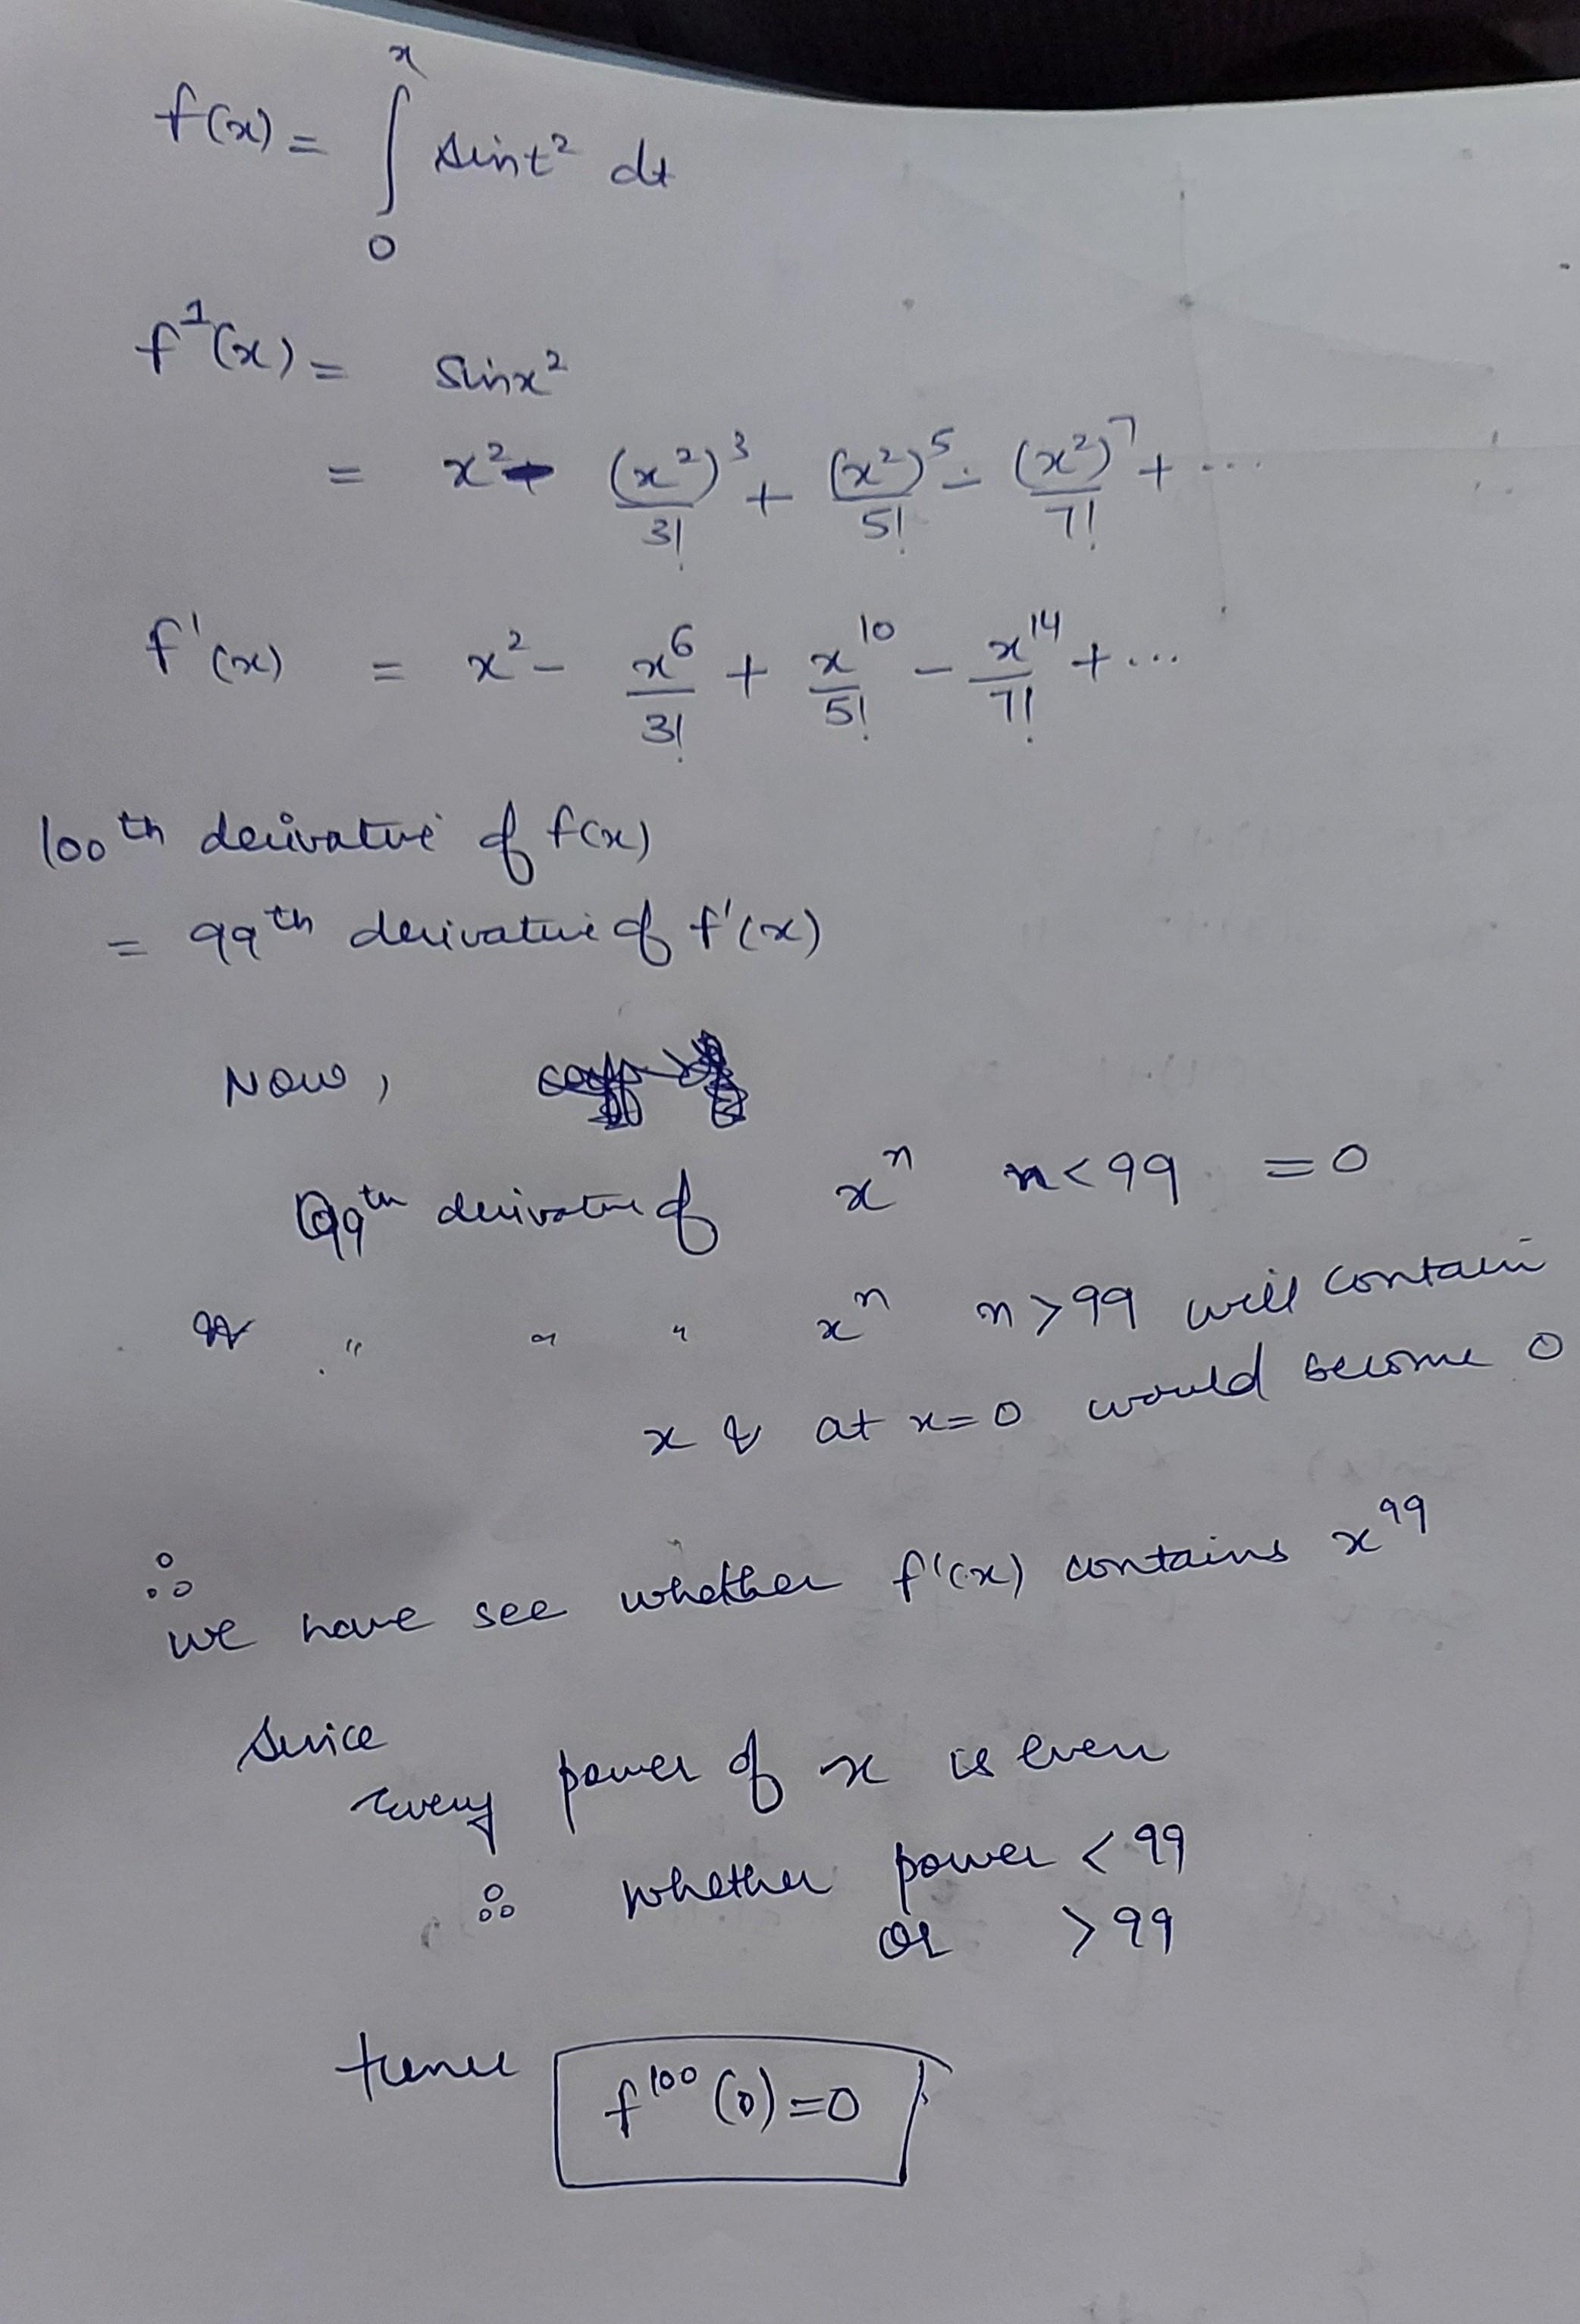 f(x) = ∫₀ˣ sint² dt
f¹(x) = sinx²
= x² - (x²)³/3! + (x²)⁵/5! - (x²)⁷/7! + ...
f'(x) = x² - x⁶/3! + x¹⁰/5! - x¹⁴/7! + ...
100th derivative of f(x)
= 99th derivative of f'(x)
Now,
99th derivative of xⁿ n<99 = 0
" " " xⁿ n>99 will contain
x & at x=0 would become 0
∴
we have see whether f'(x) contains x⁹⁹
Since
every power of x is even
∴ whether power < 99
or > 99
Hence f¹⁰⁰(0)=0